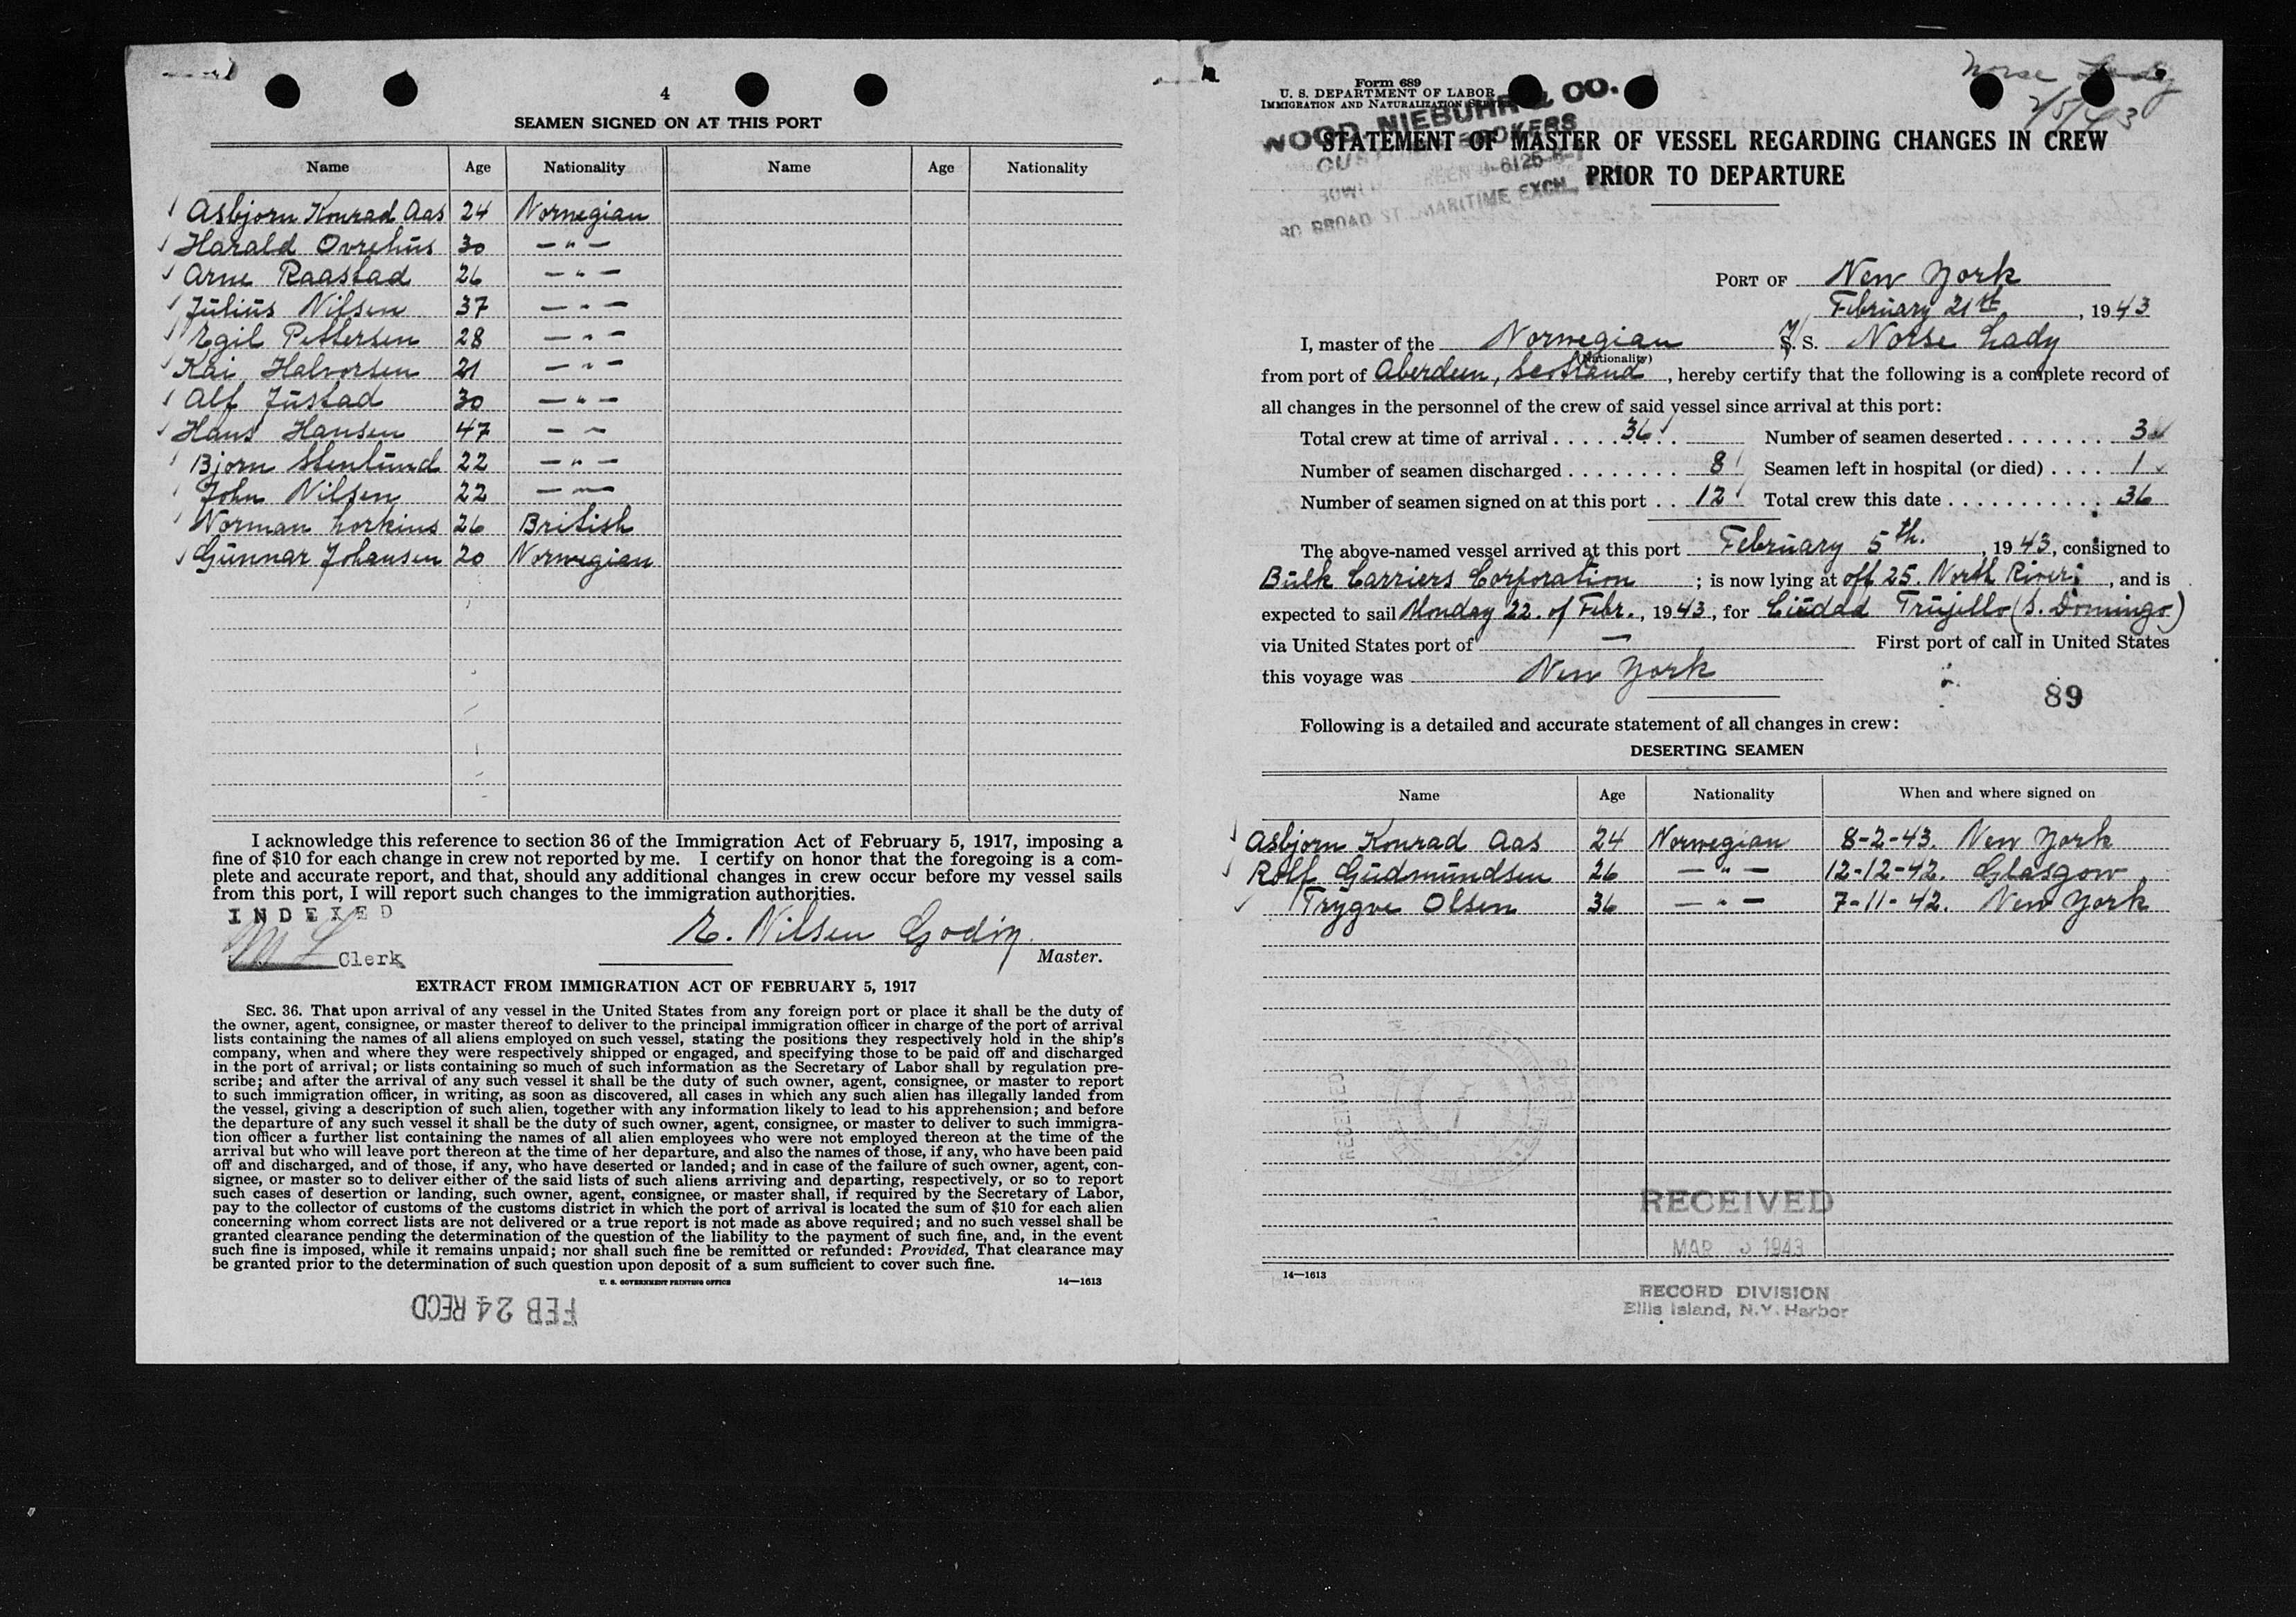 4
SEAMEN SIGNED ON AT THIS PORT
Name Age Nationality Name Age Nationality
Asbjorn Konrad Aas 24 Norwegian
Harald Ovrehus 30 — " —
Arne Raastad 26 — " —
Julius Nilsen 37 — " —
Egil Pettersen 28 — " —
Kai Halvorsen 21 — " —
Alf Justad 30 — " —
Hans Hansen 47 — " —
Bjorn Stenlund 22 — " —
John Nilsen 22 — " —
Norman Lorkins 26 British
Gunnar Johansen 20 Norwegian
I acknowledge this reference to section 36 of the Immigration Act of February 5, 1917, imposing a
fine of $10 for each change in crew not reported by me. I certify on honor that the foregoing is a com-
plete and accurate report, and that, should any additional changes in crew occur before my vessel sails
from this port, I will report such changes to the immigration authorities.
INDEXED
Clerk
E. Nilsen Godöy.
Master.
EXTRACT FROM IMMIGRATION ACT OF FEBRUARY 5, 1917
SEC. 36. That upon arrival of any vessel in the United States from any foreign port or place it shall be the duty of
the owner, agent, consignee, or master thereof to deliver to the principal immigration officer in charge of the port of arrival
lists containing the names of all aliens employed on such vessel, stating the positions they respectively hold in the ship's
company, when and where they were respectively shipped or engaged, and specifying those to be paid off and discharged
in the port of arrival; or lists containing so much of such information as the Secretary of Labor shall by regulation pre-
scribe; and after the arrival of any such vessel it shall be the duty of such owner, agent, consignee, or master to report
to such immigration officer, in writing, as soon as discovered, all cases in which any such alien has illegally landed from
the vessel, giving a description of such alien, together with any information likely to lead to his apprehension; and before
the departure of any such vessel it shall be the duty of such owner, agent, consignee, or master to deliver to such immigra-
tion officer a further list containing the names of all alien employees who were not employed thereon at the time of the
arrival but who will leave port thereon at the time of her departure, and also the names of those, if any, who have been paid
off and discharged, and of those, if any, who have deserted or landed; and in case of the failure of such owner, agent, con-
signee, or master so to deliver either of the said lists of such aliens arriving and departing, respectively, or so to report
such cases of desertion or landing, such owner, agent, consignee, or master shall, if required by the Secretary of Labor,
pay to the collector of customs of the customs district in which the port of arrival is located the sum of $10 for each alien
concerning whom correct lists are not delivered or a true report is not made as above required; and no such vessel shall be
granted clearance pending the determination of the question of the liability to the payment of such fine, and, in the event
such fine is imposed, while it remains unpaid; nor shall such fine be remitted or refunded: Provided, That clearance may
be granted prior to the determination of such question upon deposit of a sum sufficient to cover such fine.
U. S. GOVERNMENT PRINTING OFFICE 14—1613
FEB 24 RECD
Norse Lady
2/5/43
Form 689
U. S. DEPARTMENT OF LABOR
IMMIGRATION AND NATURALIZATION SERVICE
WOOD NIEBUHR & CO.
BROKERS
80 BROAD ST. MARITIME EXCH.
STATEMENT OF MASTER OF VESSEL REGARDING CHANGES IN CREW
PRIOR TO DEPARTURE
PORT OF New York
February 21th, 1943
I, master of the Norwegian M/S. S. Norse Lady
(Nationality)
from port of Aberdeen, Scotland, hereby certify that the following is a complete record of
all changes in the personnel of the crew of said vessel since arrival at this port:
Total crew at time of arrival . . . . . 36 Number of seamen deserted . . . . . . . . 3
Number of seamen discharged . . . . . . . . 8 Seamen left in hospital (or died) . . . . 1
Number of seamen signed on at this port . . 12 Total crew this date . . . . . . . . . . . . 36
The above-named vessel arrived at this port February 5th., 1943, consigned to
Bulk Carriers Corporation; is now lying at off 25. North River, and is
expected to sail Monday 22. of Febr., 1943, for Ciudad Trujillo (S. Domingo)
via United States port of — First port of call in United States
this voyage was New York
89
Following is a detailed and accurate statement of all changes in crew:
DESERTING SEAMEN
Name Age Nationality When and where signed on
Asbjorn Konrad Aas 24 Norwegian 8-2-43. New York
Rolf Gudmundsen 26 — " — 12-12-42. Glasgow
Trygve Olsen 36 — " — 7-11-42. New York
RECEIVED
RECEIVED
MAR 1943
14—1613
RECORD DIVISION
Ellis Island, N.Y. Harbor